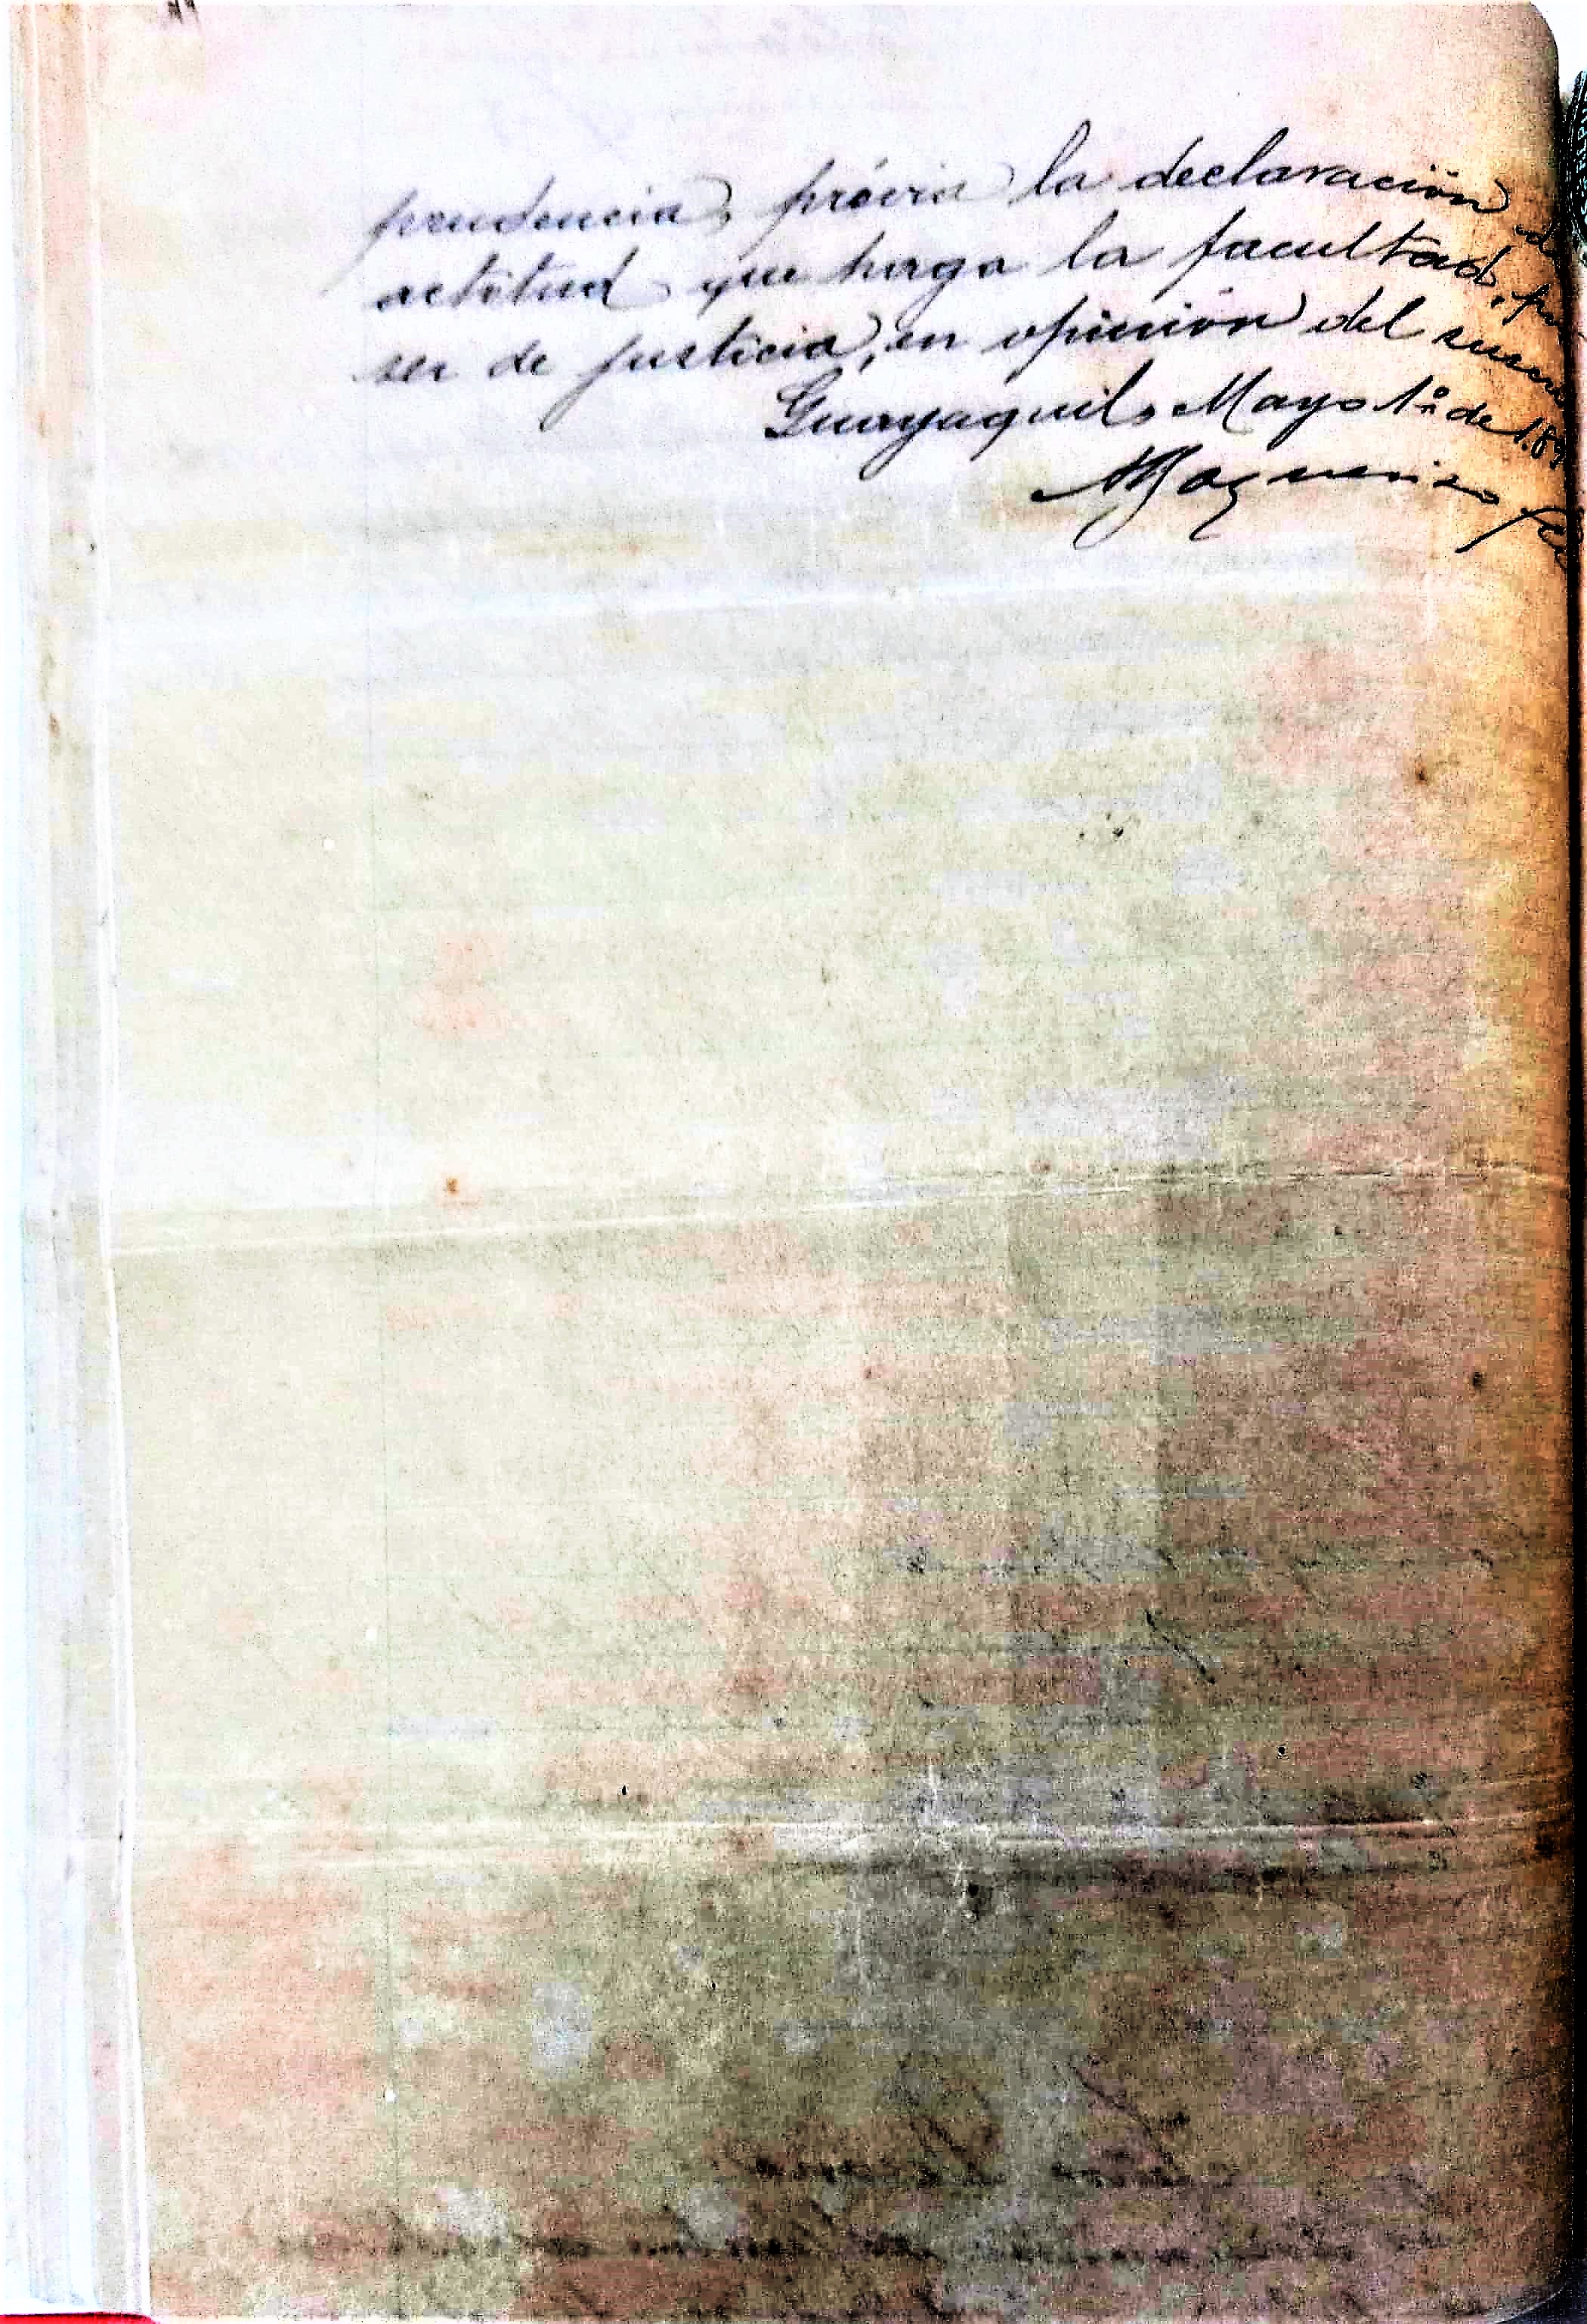 prudencia, prévia la declaración de
actitud que haga la facultad, por
ser de justicia, en opinión del
Guayaquil, Mayo 1º de 189